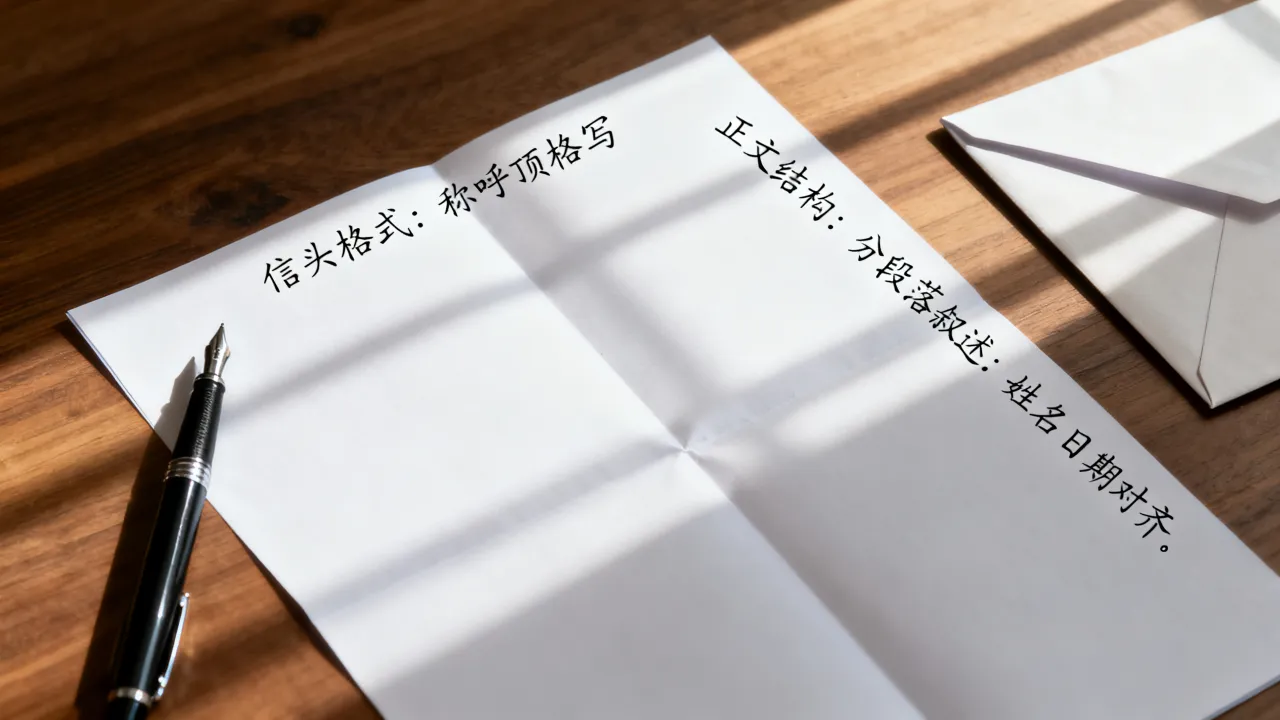 信头格式：称呼顶格写
正文结构：分段落叙述：姓名日期对齐。